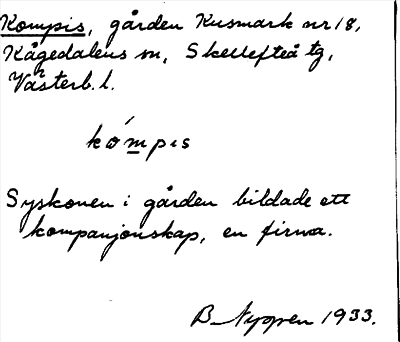 Kompis, gården Kusmark nr 18,
Kågedalens sn, Skellefteå tg,
Västerb. l.
kómpis
Syskonen i gården bildade ett
kompanjonskap, en firma.
B 1933.